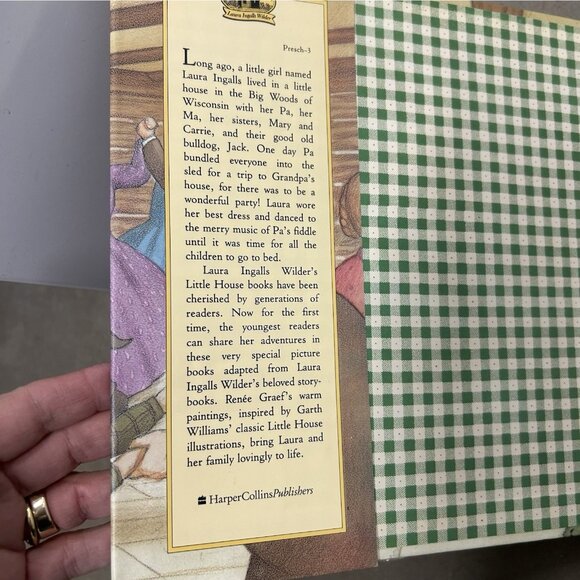 Laura Ingalls Wilder
Presch–3
Long ago, a little girl named
Laura Ingalls lived in a little
house in the Big Woods of
Wisconsin with her Pa, her
Ma, her sisters, Mary and
Carrie, and their good old
bulldog, Jack. One day Pa
bundled everyone into the
sled for a trip to Grandpa's
house, for there was to be a
wonderful party! Laura wore
her best dress and danced to
the merry music of Pa's fiddle
until it was time for all the
children to go to bed.
Laura Ingalls Wilder's
Little House books have been
cherished by generations of
readers. Now for the first
time, the youngest readers
can share her adventures in
these very special picture
books adapted from Laura
Ingalls Wilder's beloved story-
books. Renée Graef's warm
paintings, inspired by Garth
Williams' classic Little House
illustrations, bring Laura and
her family lovingly to life.
HarperCollinsPublishers